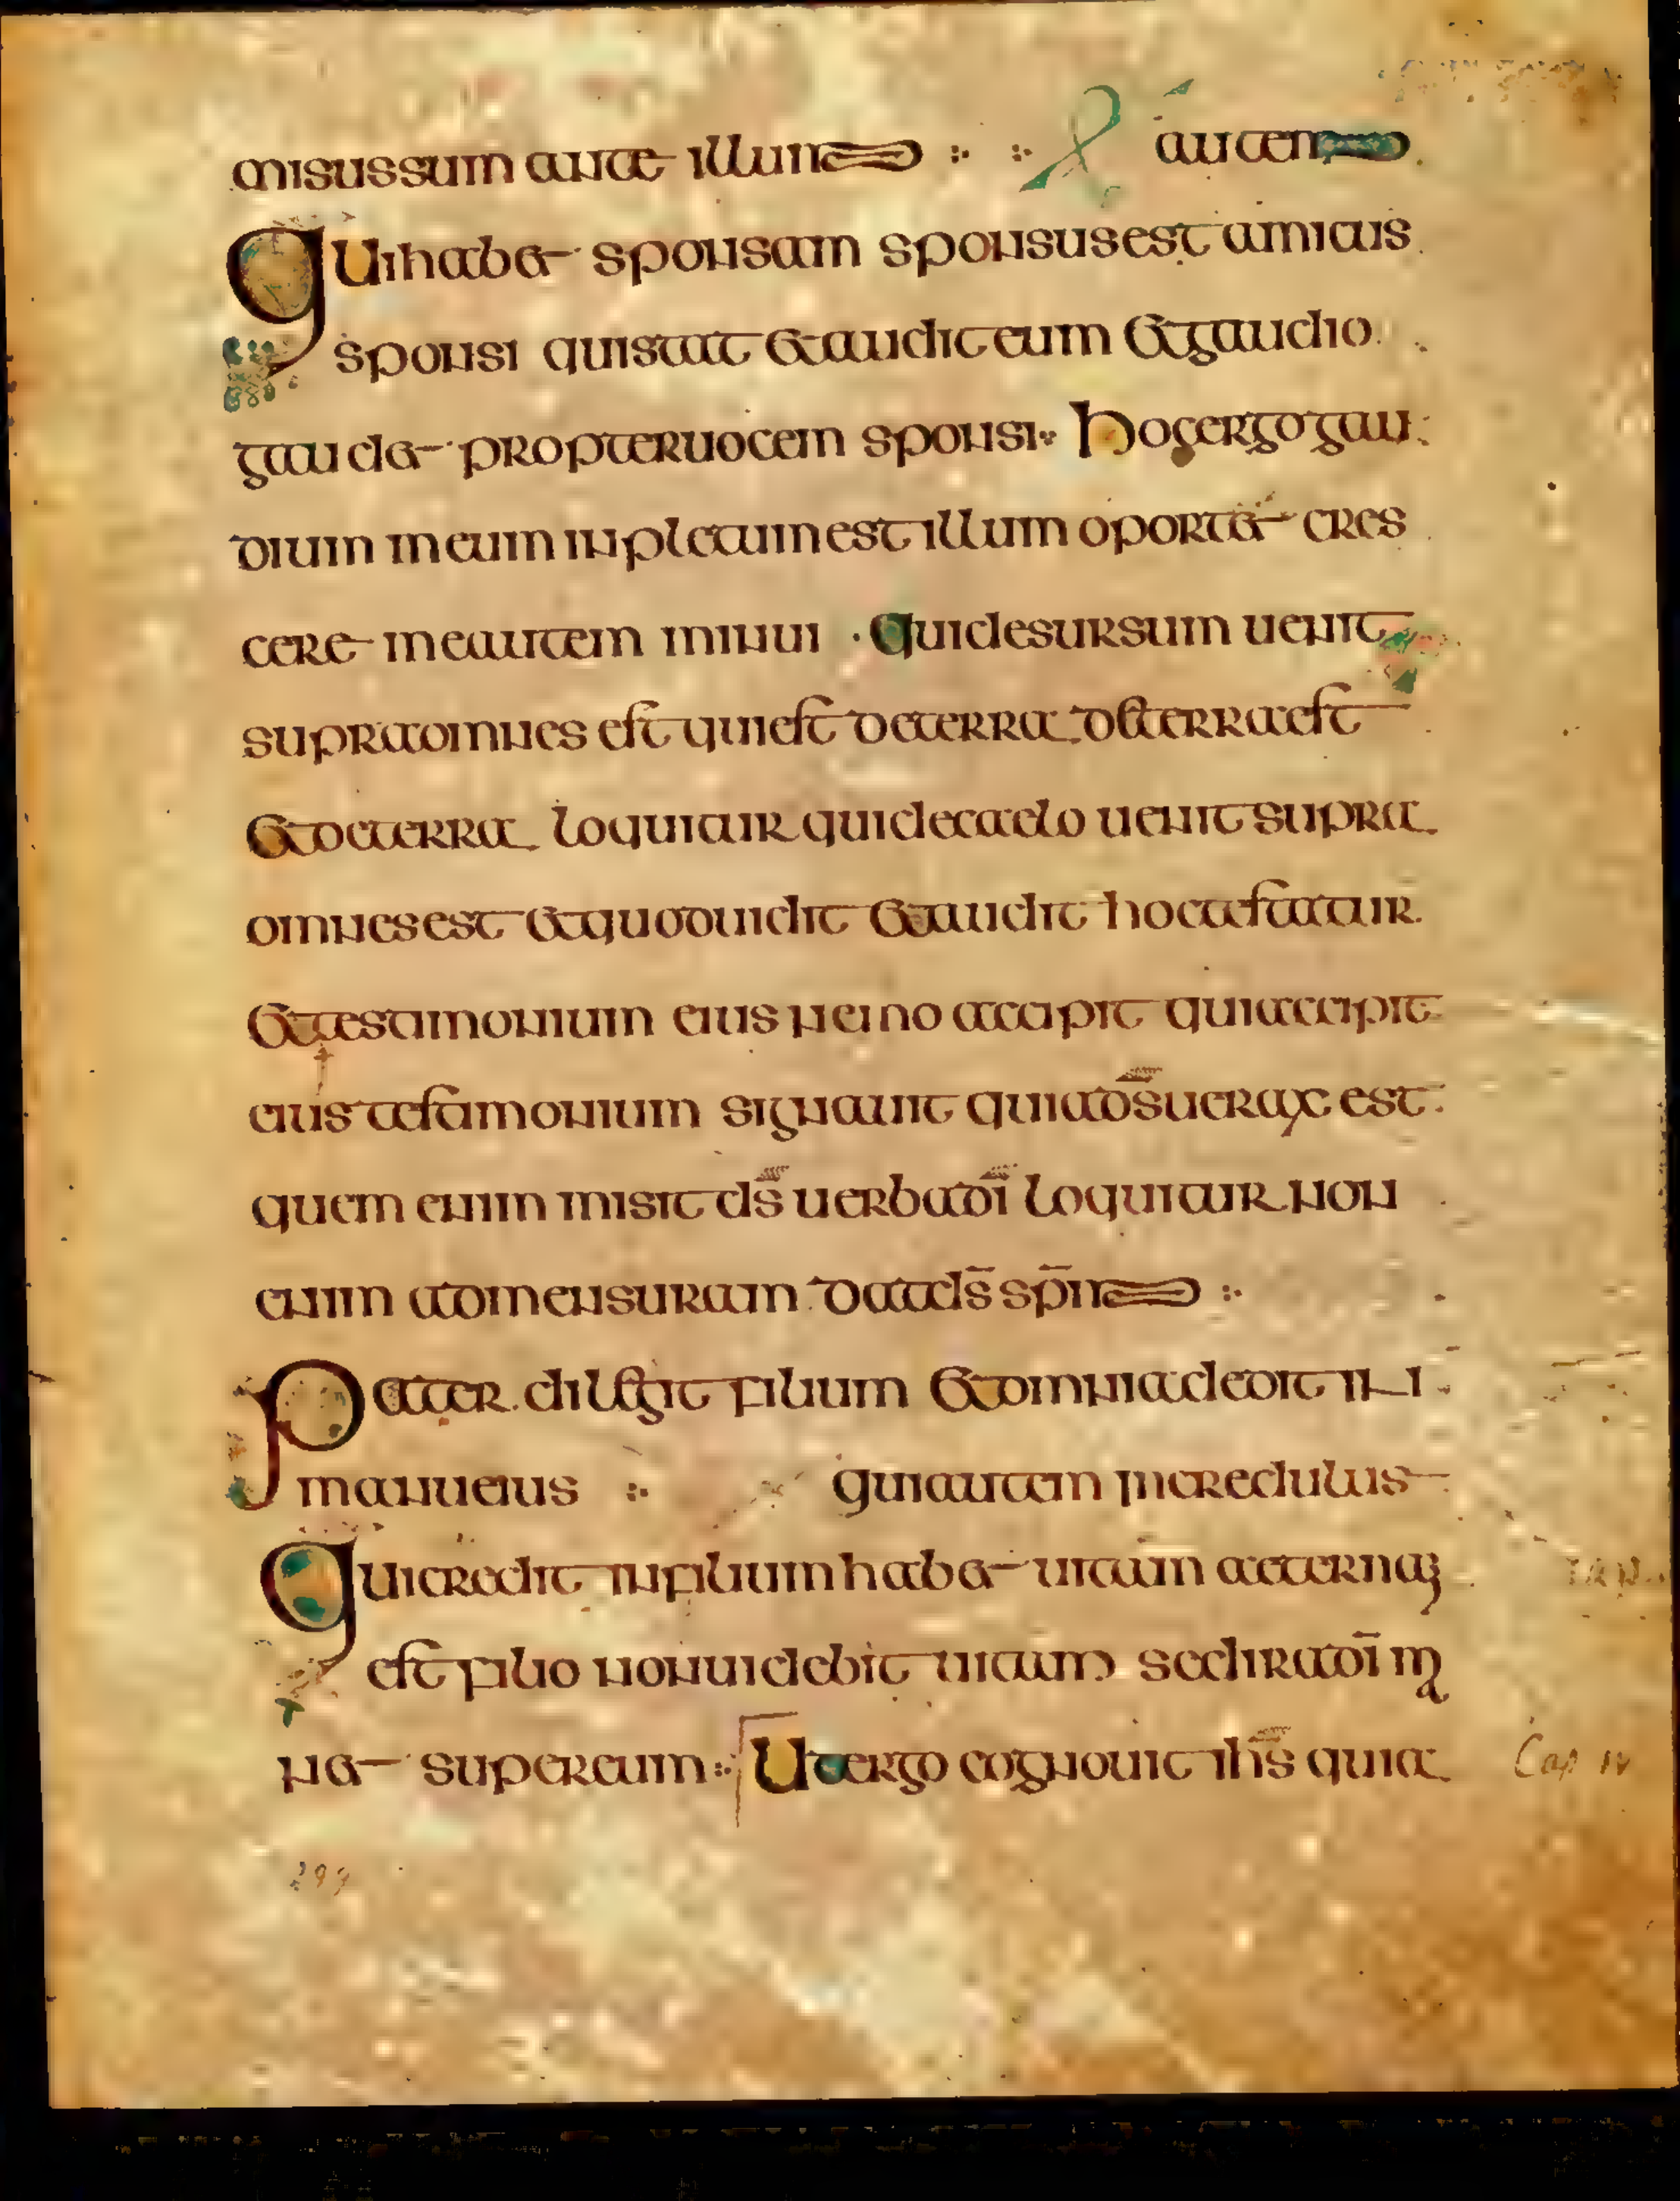 misus sum ante illum autem
Qui habet sponsam sponsus est amicus
sponsi qui stat et audit eum et gaudio
gaudet propter uocem sponsi Hoc ergo gau
dium meum inpletum est illum oportet cres
cere me autem minui Qui desursum uenit
supra omnes est qui est de terra de terra est
et de terra loquitur qui de caelo uenit supra
omnes est et quod uidit et audit hoc testatur
et testimonium eius nemo accipit qui accipit
eius testimonium signauit quia d̅s̅ uerax est
quem enim misit d̅s̅ uerba d̅ı̅ loquitur non
enim ad mensuram dat d̅s̅ s̅p̅m̅
Pater diligit filium et omnia dedit in
manu eius qui autem incredulus
Qui credit in filium habet uitam aeternam
est filio non uidebit uitam sed ira d̅ı̅ ma
net super eum Ut ergo cognouit ı̅h̅s̅ quia
Cap IV